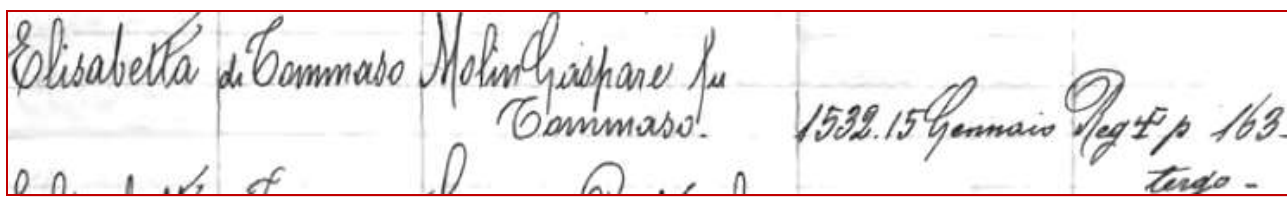 Elisabetta di Tommaso Molin Gaspare fu
Tommaso. 1532.15 Gennaio Reg F p 163-
tergo-